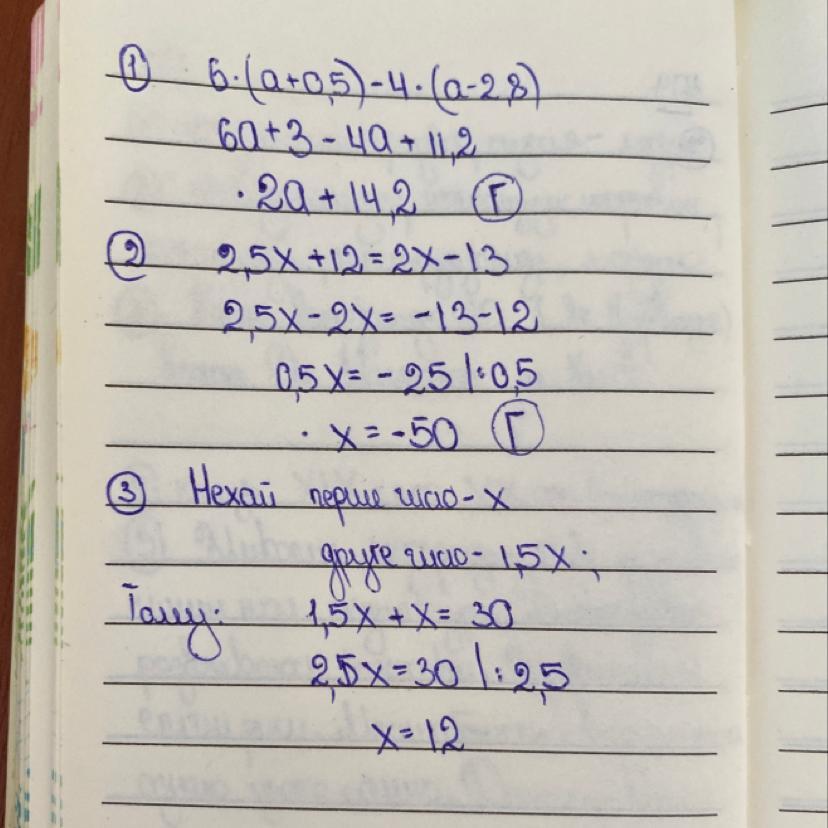 ① 6·(a+0,5)-4·(a-2,8)
6a+3-4a+11,2
·2a+14,2 Г
② 2,5x+12=2x-13
2,5x-2x=-13-12
0,5x=-25 |:0,5
·x=-50 Г
③ Нехай перше число-x
друге число-1,5x;
Тому: 1,5x+x=30
2,5x=30 |:2,5
x=12